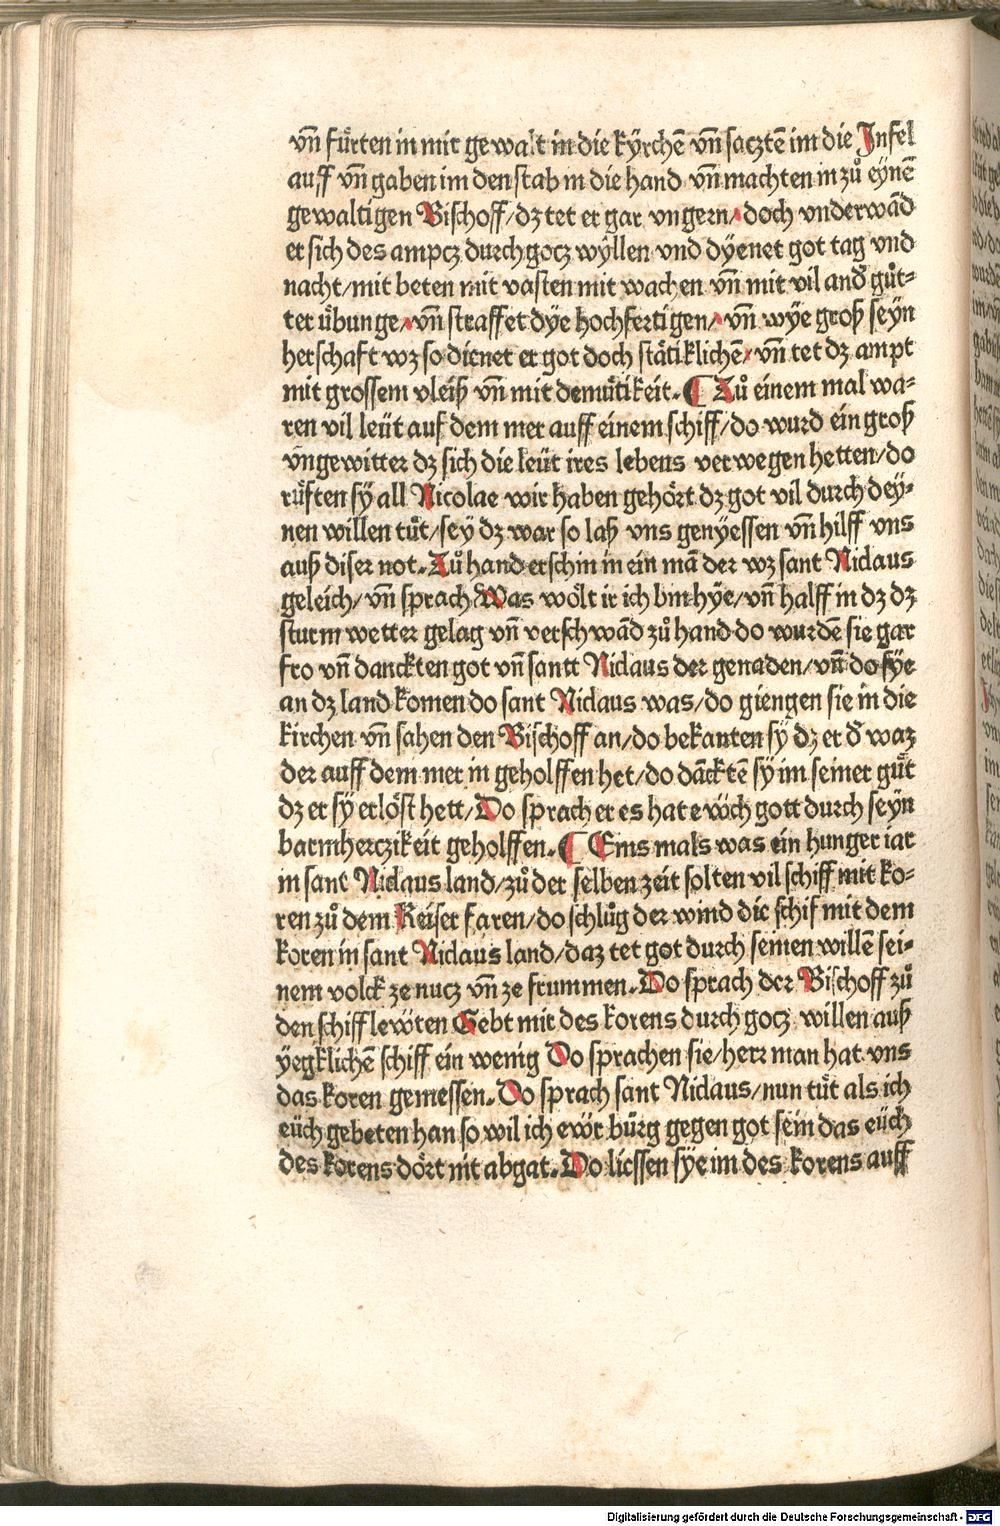 vn̄ fuͤrten in mit gewalt in die kÿrchē vn̄ sacztē im die Infel
auff vn̄ gaben im den stab in die hand vn̄ machten in zuͦ eynē
gewaltigen Bischoff/dz tet er gar vngern/doch vnderwād
er sich des ampcz durch gocz wÿllen vnd dÿenet got tag vnd
nacht/mit beten mit vasten mit wachen vn̄ mit vil and̕ guͦt-
ter uͤbunge/vn̄ straffet dÿe hochfertigen/vn̄ wÿe groß seyn
herschaft wz so dienet er got doch staͤtiklichē/vn̄ tet dz ampt
mit grossem vleiß vn̄ mit demuͤtikeit. ¶ Zuͦ einem mal wa-
ren vil leüt auf dem mer auff einem schiff/do wurd ein groß
vngewitter dz sich die leüt ires lebens verwegen hetten/do
ruͤften sÿ all Nicolae wir haben gehoͤrt dz got vil durch dey-
nen willen tuͦt/sey dz war so laß vns genyessen vn̄ hilff vns
auß diser not. Zuͦ hand erschin in ein mā der wz sant Niclaus
geleich/vn̄ sprach Was woͤlt ir ich bin hÿe/vn̄ halff in dz dz
sturm wetter gelag vn̄ verschwād zuͦ hand do wurdē sie gar
fro vn̄ danckten got vn̄ santt Niclaus der genaden/vn̄ do sÿe
an dz land komen do sant Niclaus was/do giengen sie in die
kirchen vn̄ sahen den Bischoff an/do bekanten sÿ dz er d̕ waz
der auff dem mer in geholffen het/do dācktē sÿ im seiner guͤt
dz er sÿ erloͤst hett/Do sprach er es hat eẅch gott durch seyn
barmherczikeit geholffen. ¶ Eins mals was ein hunger iar
in sant Niclaus land/zuͦ der selben zeit solten vil schiff mit ko-
ren zuͦ dem Keiser faren/do schluͦg der wind die schif mit dem
koren in sant Niclaus land/daz tet got durch seinen willē sei-
nem volck ze nucz vn̄ ze frummen. Do sprach der Bischoff zuͦ
den schiffleẅten Gebt mir des korens durch gocz willen auß
ÿegklichē schiff ein wenig Do sprachen sie/herr man hat vns
das koren gemessen. Do sprach sant Niclaus/nun tuͤt als ich
eüch gebeten han so wil ich eẅr bürg gegen got sein das eüch
des korens doͤrt nit abgat. Do liessen sÿe im des korens auff
Digitalisierung gefördert durch die Deutsche Forschungsgemeinschaft - DFG